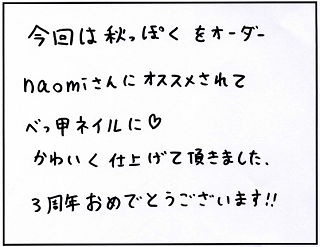 今回は秋っぽくをオーダー
naomiさんにオススメされて
べっ甲ネイルに♡
かわいく仕上げて頂きました、
3周年おめでとうございます!!